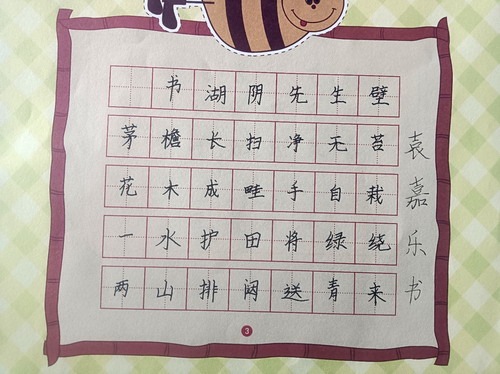 书湖阴先生壁
茅檐长扫净无苔
花木成畦手自栽
一水护田将绿绕
两山排闼送青来
袁嘉乐书
3